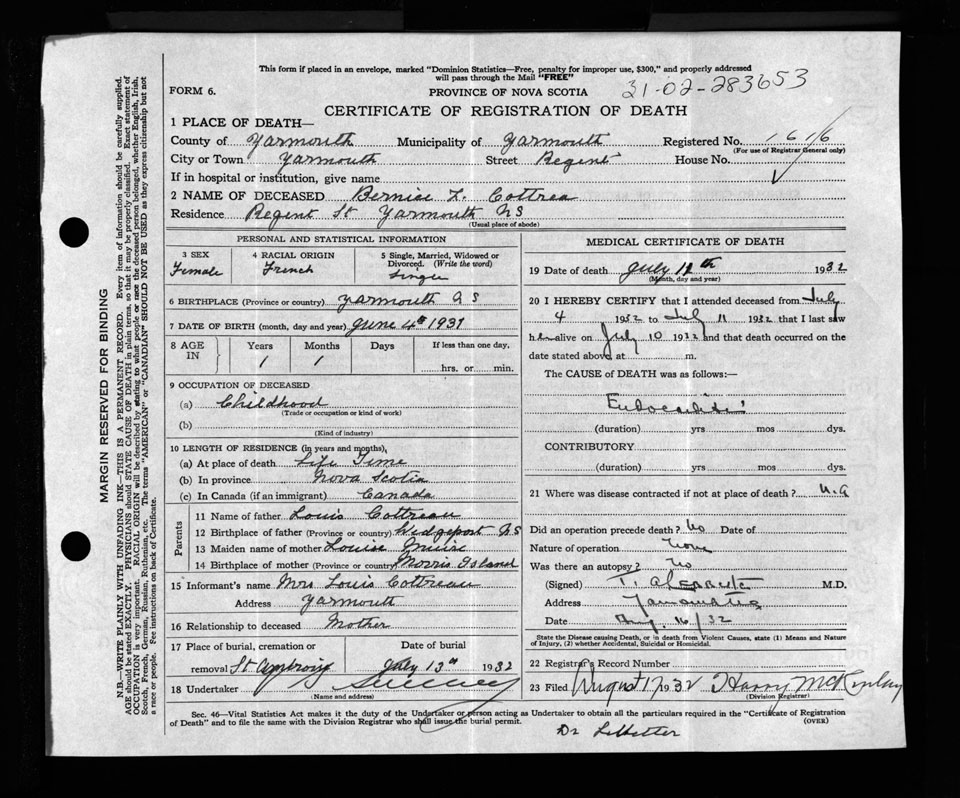 This form if placed in an envelope, marked "Dominion Statistics—Free, penalty for improper use, $300," and properly addressed
will pass through the Mail "FREE"
FORM 6. PROVINCE OF NOVA SCOTIA 31-02-283653
CERTIFICATE OF REGISTRATION OF DEATH
1 PLACE OF DEATH—
County of Yarmouth Municipality of Yarmouth Registered No. 1616
(For use of Registrar General only)
City or Town Yarmouth Street Regent House No.
If in hospital or institution, give name
2 NAME OF DECEASED Bernice L. Cottrea
Residence Regent St Yarmouth NS
(Usual place of abode)
PERSONAL AND STATISTICAL INFORMATION
3 SEX 4 RACIAL ORIGIN 5 Single, Married, Widowed or
Divorced. (Write the word)
Female French Single
6 BIRTHPLACE (Province or country) Yarmouth N S
7 DATE OF BIRTH (month, day and year) June 4th 1931
8 AGE IN Years Months Days If less than one day.
1 1 hrs. or min.
9 OCCUPATION OF DECEASED
(a) Childhood
(Trade or occupation or kind of work)
(b)
(Kind of industry)
10 LENGTH OF RESIDENCE (in years and months)
(a) At place of death Life Time
(b) In province Nova Scotia
(c) In Canada (if an immigrant) Canada
Parents
11 Name of father Louis Cottreau
12 Birthplace of father (Province or country) Wedgeport N S
13 Maiden name of mother Louise Muise
14 Birthplace of mother (Province or country) Morris Island
15 Informant's name Mrs Louis Cottreau
Address Yarmouth
16 Relationship to deceased Mother
17 Place of burial, cremation or Date of burial
removal St Ambroise July 13th 1932
18 Undertaker Sweeney
(Name and address)
MEDICAL CERTIFICATE OF DEATH
19 Date of death July 12th 1932
(Month, day and year)
20 I HEREBY CERTIFY that I attended deceased from July
4 1932 to July 11 1932 that I last saw
her alive on July 10 1932 and that death occurred on the
date stated above at m.
The CAUSE of DEATH was as follows:—
Endocarditis
(duration) yrs mos dys.
CONTRIBUTORY
(duration) yrs mos dys.
21 Where was disease contracted if not at place of death?
Did an operation precede death? No Date of
Nature of operation None
Was there an autopsy? No
(Signed) M.D.
Address Yarmouth
Date Aug. 16/32
State the Disease causing Death, or in death from Violent Causes, state (1) Means and Nature
of Injury, (2) whether Accidental, Suicidal or Homicidal.
22 Registrar's Record Number
23 Filed August 17 1932 Harry McKinlay
(Division Registrar)
Sec. 46—Vital Statistics Act makes it the duty of the Undertaker or person acting as Undertaker to obtain all the particulars required in the "Certificate of Registration
of Death" and to file the same with the Division Registrar who shall issue the burial permit. (OVER)
Dr
MARGIN RESERVED FOR BINDING
N.B.—WRITE PLAINLY WITH UNFADING INK—THIS IS A PERMANENT RECORD. Every item of information should be carefully supplied.
AGE should be stated EXACTLY. PHYSICIANS should STATE CAUSE OF DEATH in plain terms, so that it may be properly classified. Exact statement of
OCCUPATION is very important. RACIAL ORIGIN will be described by stating to what people or race the deceased person belonged, whether English, Irish,
Scotch, French, German, Russian, Ruthenian, etc. The terms "AMERICAN" or "CANADIAN" SHOULD NOT BE USED as they express citizenship but not
a race or people. See instructions on back of Certificate.